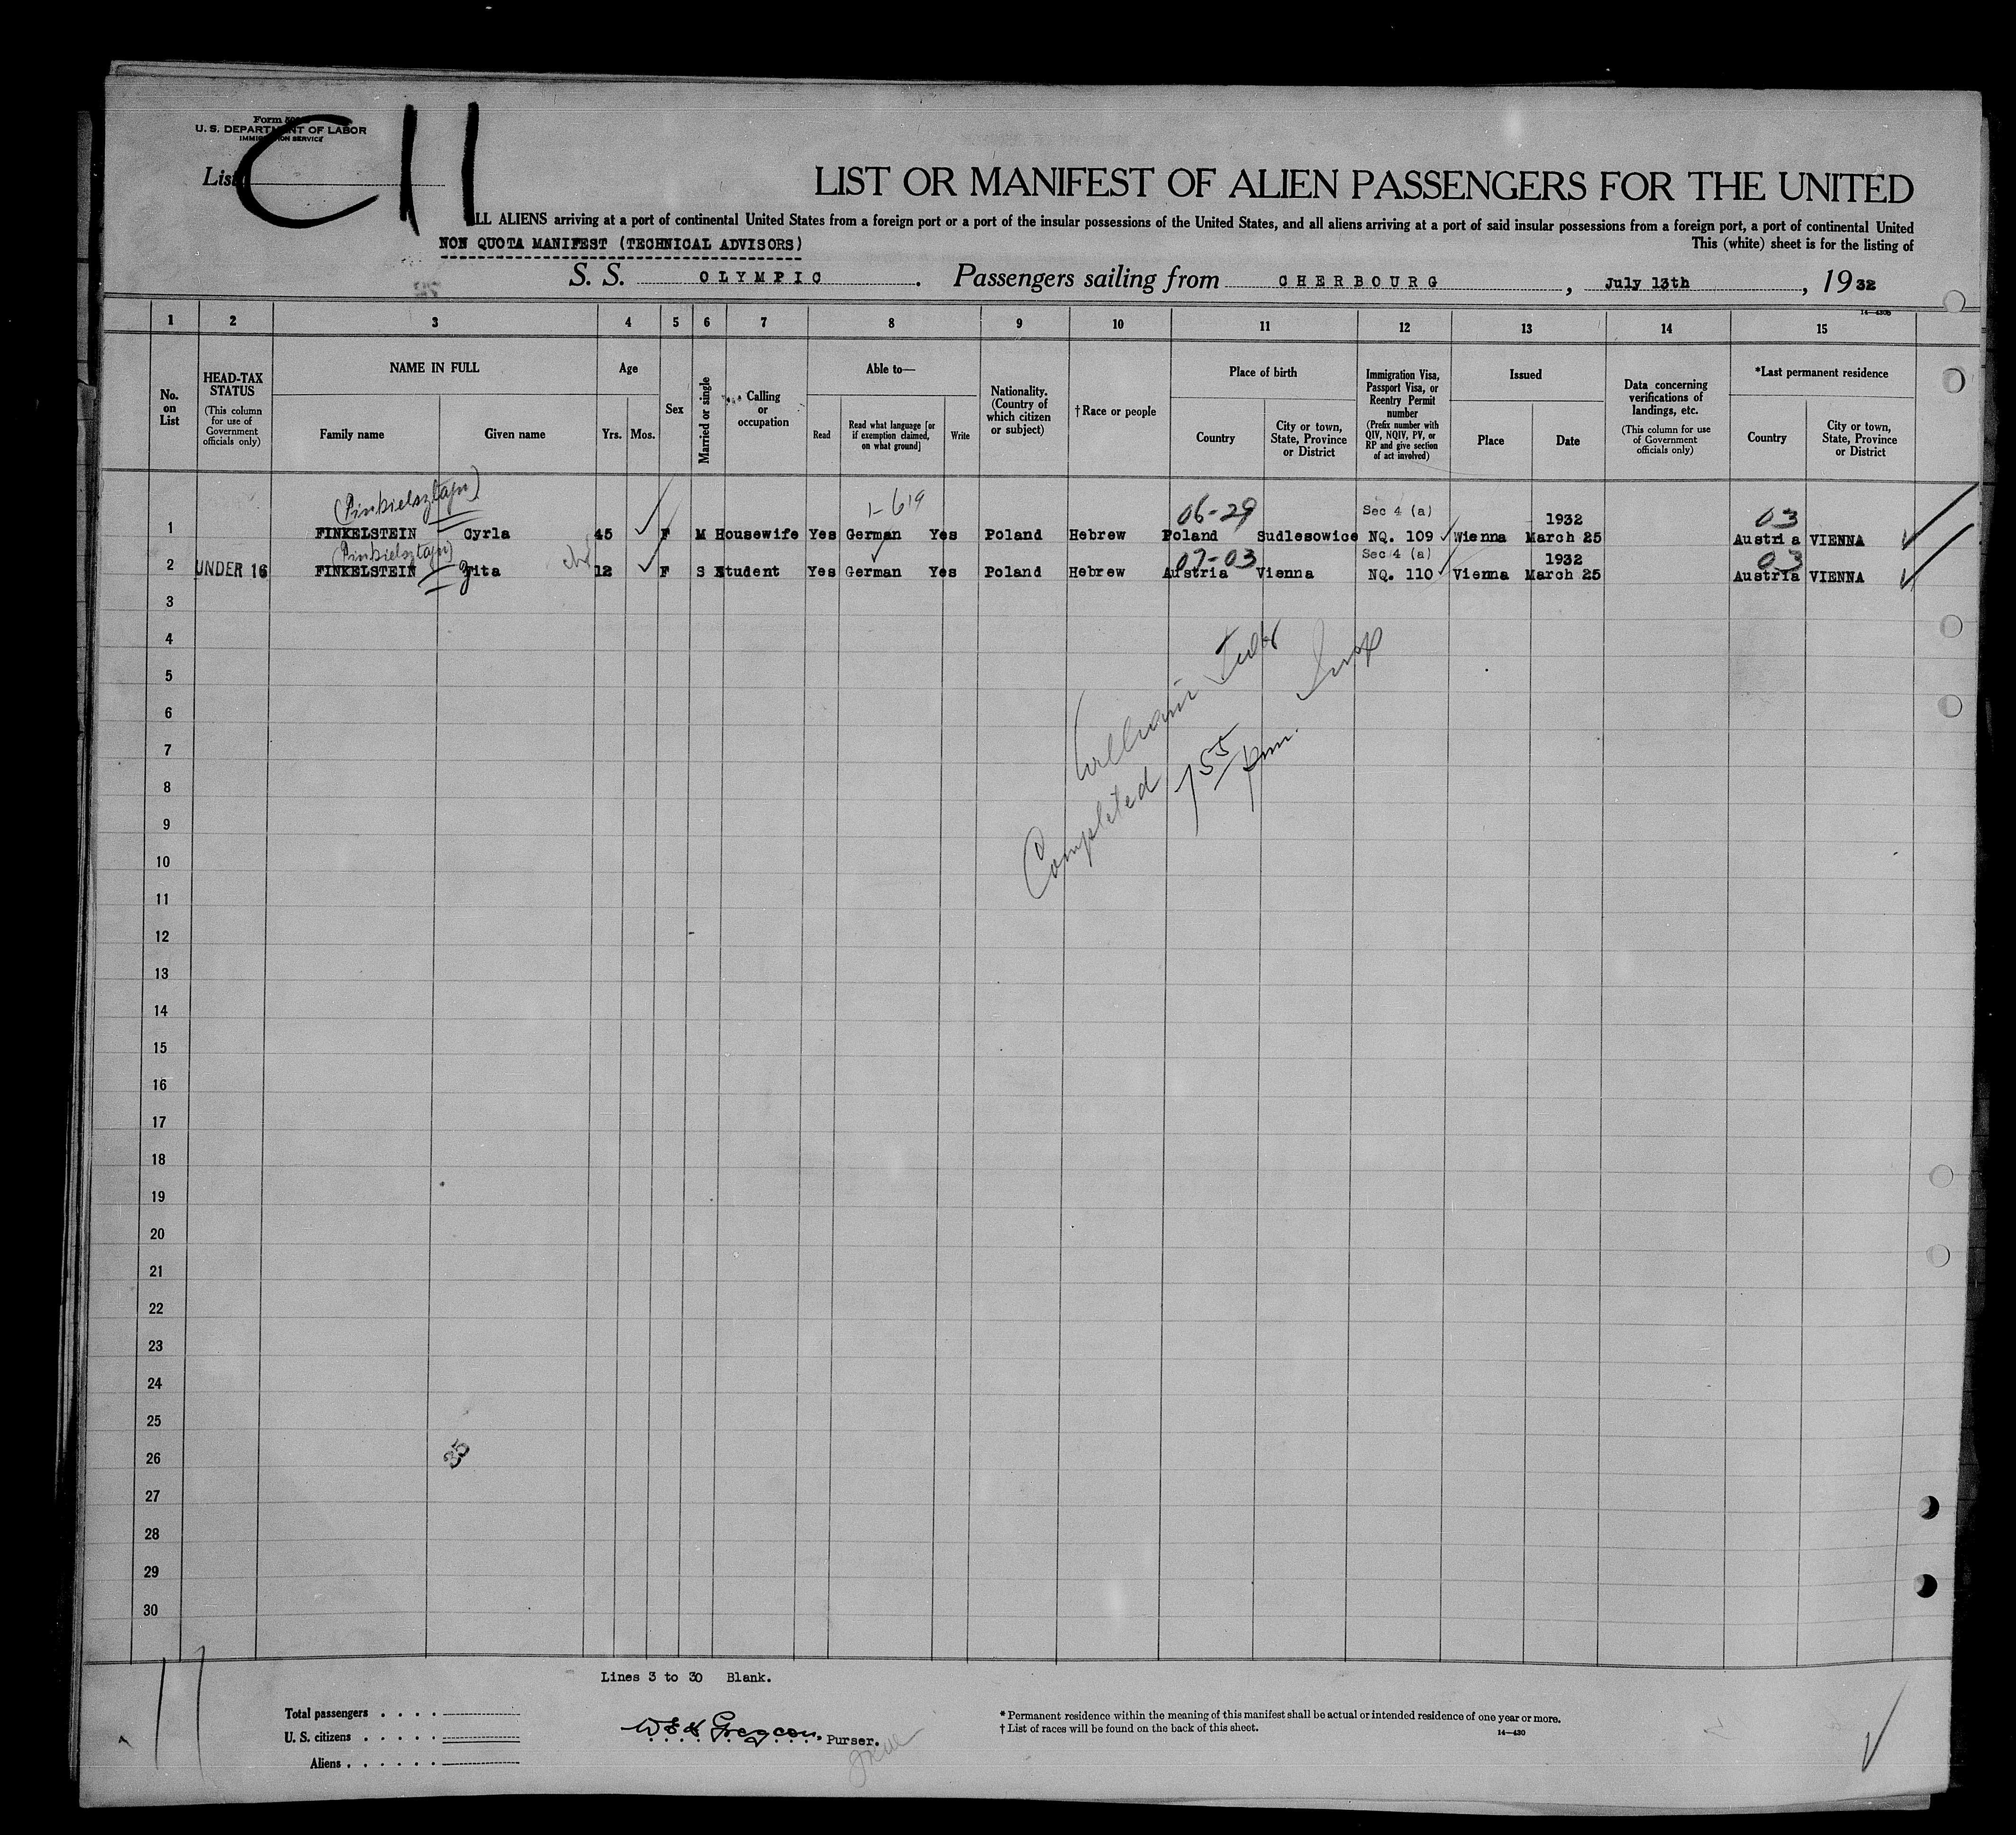 Form 500
U. S. DEPARTMENT OF LABOR
IMMIGRATION SERVICE
List
C 11
LIST OR MANIFEST OF ALIEN PASSENGERS FOR THE UNITED
ALL ALIENS arriving at a port of continental United States from a foreign port or a port of the insular possessions of the United States, and all aliens arriving at a port of said insular possessions from a foreign port, a port of continental United
NON QUOTA MANIFEST (TECHNICAL ADVISORS)
This (white) sheet is for the listing of
S. S. OLYMPIC. Passengers sailing from CHERBOURG, July 13th, 1932
14—430b
1 2 3 4 5 6 7 8 9 10 11 12 13 14 15
No. on List
HEAD-TAX STATUS
(This column for use of Government officials only)
NAME IN FULL
Family name
Given name
Age
Yrs.
Mos.
Sex
Married or single
Calling or occupation
Able to—
Read
Read what language [or if exemption claimed, on what ground]
Write
Nationality. (Country of which citizen or subject)
† Race or people
Place of birth
Country
City or town, State, Province or District
Immigration Visa, Passport Visa, or Reentry Permit number
(Prefix number with QIV, NQIV, PV, or RP and give section of act involved)
Issued
Place
Date
Data concerning verifications of landings, etc.
(This column for use of Government officials only)
*Last permanent residence
Country
City or town, State, Province or District
(Finkielsztajn) 1-619 06-29 Sec 4 (a) 1932 03
1 FINKELSTEIN Cyrla 45 F M Housewife Yes German Yes Poland Hebrew Poland Sudlesowice NQ. 109 Wienna March 25 Austria VIENNA
(Finkielsztajn) 07-03 Sec 4 (a) 1932 03
2 UNDER 16 FINKELSTEIN Zita 12 F S Student Yes German Yes Poland Hebrew Austria Vienna NQ. 110 Vienna March 25 Austria VIENNA
3
4
5
6
7
8
9
10
11
12
13
14
15
16
17
18
19
20
21
22
23
24
25
26
27
28
29
30
William Insp
Completed 1 55 pm.
Lines 3 to 30 Blank.
Total passengers
U. S. citizens
Aliens
Purser.
* Permanent residence within the meaning of this manifest shall be actual or intended residence of one year or more.
† List of races will be found on the back of this sheet.
14—430